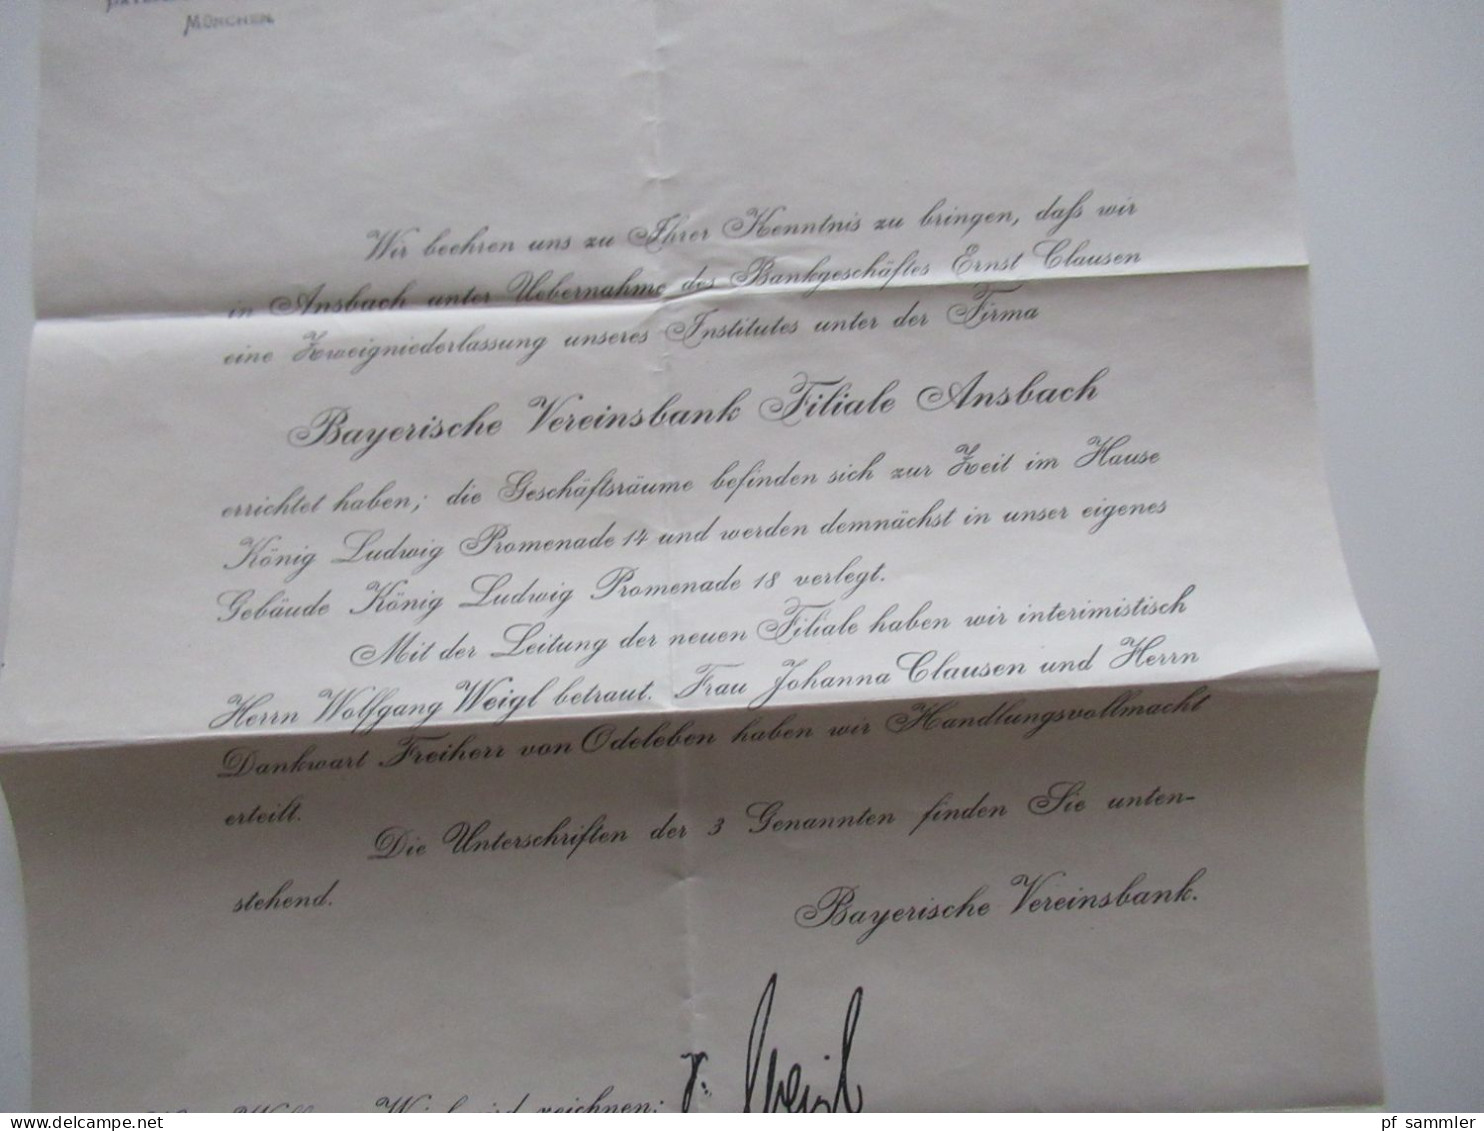 MÜNCHEN.
Wir beehren uns zu Ihrer Kenntnis zu bringen, daß wir
in Ansbach unter Uebernahme des Bankgeschäftes Ernst Clausen
eine Zweigniederlassung unseres Institutes unter der Firma
Bayerische Vereinsbank Filiale Ansbach
errichtet haben; die Geschäftsräume befinden sich zur Zeit im Hause
König Ludwig Promenade 14 und werden demnächst in unser eigenes
Gebäude König Ludwig Promenade 18 verlegt.
Mit der Leitung der neuen Filiale haben wir interimistisch
Herrn Wolfgang Weigl betraut. Frau Johanna Clausen und Herrn
Dankwart Freiherr von Odeleben haben wir Handlungsvollmacht
erteilt.
Die Unterschriften der 3 Genannten finden Sie unten-
stehend.
Bayerische Vereinsbank.
wird zeichnen:
pf sammler
delcampe.net